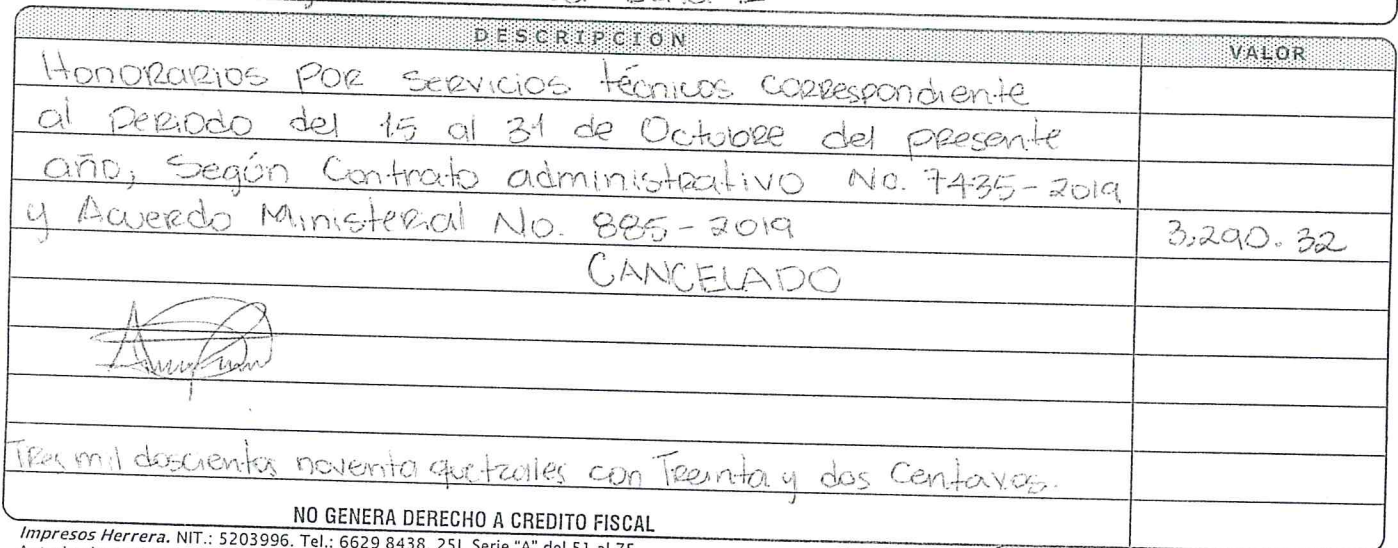 DESCRIPCION
VALOR
Honorarios por servicios técnicos correspondiente
al periodo del 15 al 31 de Octubre del presente
año, Según Contrato administrativo No. 7435-2019
y Acuerdo Ministerial No. 885-2019 3,290.32
CANCELADO
Tres mil doscientos noventa quetzales con Treinta y dos Centavos.
NO GENERA DERECHO A CREDITO FISCAL
Impresos Herrera. NIT.: 5203996. Tel.: 6629 8438 Serie "A" del 51 al 75